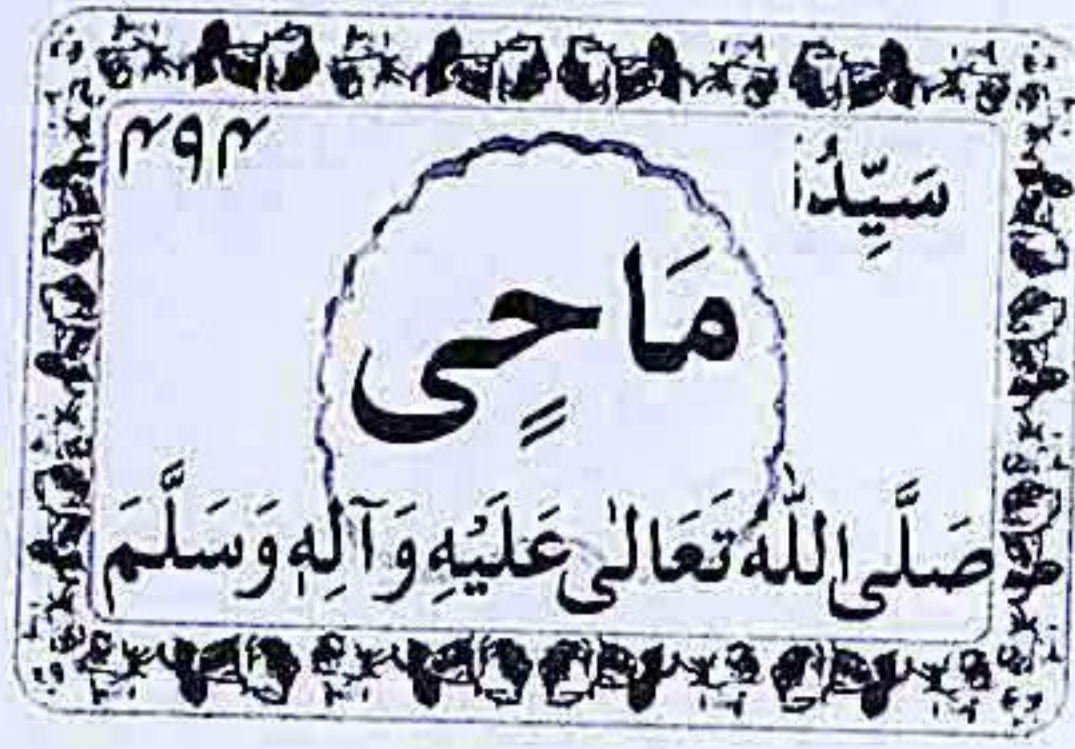 سَيِّدُنَا ۴۹۴
مَاحِی
صَلَّى اللّٰهُ تَعَالٰى عَلَيْهِ وَآلِهٖ وَسَلَّمَ